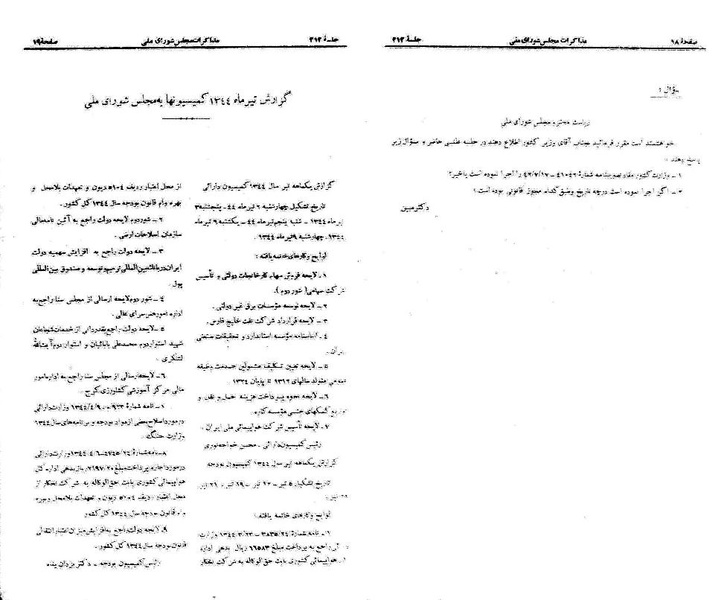 صفحهٔ ۱۸ مذاکرات مجلس شورای ملی جلسهٔ ۲۱۳
سؤال :
ریاست محترم مجلس شورای ملی
خواهشمند است مقرر فرمائید جناب آقای وزیر کشور اطلاع دهند در جلسه علنی حاضر و بسؤال زیر
پاسخ دهند :
۱ – وزارت کشور مفاد تصویبنامه شمارهٔ را اجرا نموده است یا خیر؟
۲ – اگر اجرا نموده است درچه تاریخ و طبق کدام مجوز قانونی بوده است؟
دکتر مبین
جلسهٔ ۲۱۳ مذاکرات مجلس شورای ملی صفحهٔ ۱۹
گزارش تیرماه ۱۳۴۴ کمیسیونها به مجلس شورای ملی
گزارش یکماهه تیر سال ۱۳۴۴ کمیسیون دارائی
تاریخ تشکیل چهارشنبه ۲ تیرماه ۴۴ – پنجشنبه ۳
تیرماه ۱۳۴۴ – شنبه پنجم تیرماه ۴۴ – یکشنبه ۶ تیرماه
۱۳۴۴ – چهارشنبه ۹ تیرماه ۱۳۴۴.
لوایح و کارهای خاتمه یافته :
۱ – لایحه فروش سهام کارخانجات دولتی و تأسیس
شرکت سهامی (شور دوم).
۲ – لایحه توسعه مؤسسات برق غیر دولتی.
۳ – لایحه قرارداد شرکت نفت خلیج فارس.
۴ – اساسنامه مؤسسه استاندارد و تحقیقات صنعتی
ایران.
۵ – لایحه تعیین تکلیف مشمولین خدمت وظیفه
عمومی متولد سالهای ۱۳۱۲ تا پایان
۶ – لایحه نحوه پرداخت هزینه حمل و نقل و
توزیع کمکهای جنسی مؤسسه کاره.
۷ – لایحه تأسیس شرکت هواپیمائی ملی ایران.
رئیس کمیسیون دارائی – محسن خواجه نوری
گزارش یکماهه تیر سال ۱۳۴۴ کمیسیون بودجه
تاریخ تشکیل ۵ تیر – ۱۲ تیر – ۱۹ تیر – ۲۱ تیر
لوایح و کارهای خاتمه یافته :
۱ – نامه شمارهٔ ۳۸۳۵/۲۴ – وزارت
دارائی راجع به پرداخت مبلغ ۱۶۵۸۳ ریال بدهی اداره
کل هواپیمائی کشوری بابت حق الوکاله به شرکت تفتکار
از محل اعتبار ردیف ۵۱۰۴ دیون و تعهدات بلامحل و
بهره وام قانون بودجه سال ۱۳۴۴ کل کشور.
۲ – شور دوم لایحه دولت راجع به آئین نامه مالی
سازمان اصلاحات ارضی.
۳ – لایحه دولت راجع به افزایش سهمیه دولت
ایران در بانک بین المللی ترمیم و توسعه و صندوق بین المللی
پول.
۴ – شور دوم لایحه ارسالی از مجلس سنا راجع به
اداره امور هنرسرای عالی.
۵ – لایحه دولت راجع بقدردانی از خدمات شجاعان
شهید استوار دوم محمد علی بابائیان و استوار دوم آیت الله
لشکری.
۶ – لایحه ارسالی از مجلس سنا راجع به اداره امور
مالی مرکز آموزشی کشاورزی کرج.
۷ – نامه شمارهٔ وزارت دارائی
در مورد اصلاح بعضی از مواد بودجه و برنامه های سال ۱۳۴۴
وزارت جنگ.
۸ – نامه شمارهٔ وزارت دارائی
در مورد اجازه پرداخت مبلغ ریال بدهی اداره کل
هواپیمائی کشوری بابت حق الوکاله به شرکت تفتکار از
محل اعتبار ردیف ۵۱۰۴ دیون و تعهدات بلامحل و بهره
وام قانون بودجه سال ۱۳۴۴ کل کشور.
۹ – لایحه دولت راجع به افزایش میزان اعتبار انتقالی
قانون بودجه سال ۱۳۴۴ کل کشور.
رئیس کمیسیون بودجه – دکتر یزدان پناه